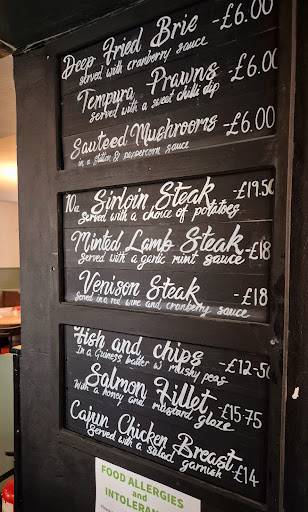 Deep Fried Brie -£6.00
served with cranberry sauce
Tempura Prawns -£6.00
served with a sweet chilli dip
Sauteed Mushrooms -£6.00
in a stilton & peppercorn sauce
10oz Sirloin Steak -£19.50
Served with a choice of potatoes
Minted Lamb Steak -£18
In a garlic mint sauce
Venison Steak -£18
Served in a red wine and cranberry sauce
Fish and chips -£12-50
In a Guiness batter w mushy peas
Salmon Fillet -£15.75
With a honey and mustard glaze
Cajun Chicken Breast -£14
Served with a salad garnish
FOOD ALLERGIES
and